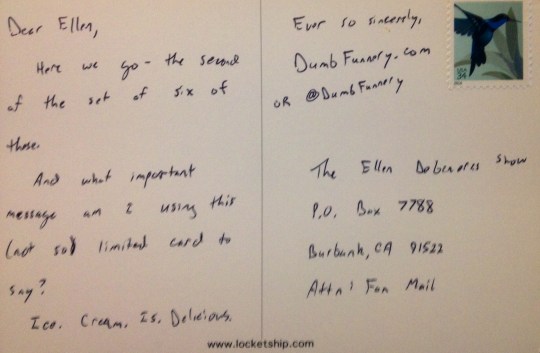 Dear Ellen,
Here we go - the second
of the set of six of
these.
And what important
message am I using this
(not so limited card to
say?
Ice. Cream. Is. Delicious.
Ever so sincerely,
DumbFunnery.com
OR @DumbFunnery
The Ellen Show
P.O. Box 7788
Burbank, CA 91522
Attn: Fan Mail
www.locketship.com
USA
34